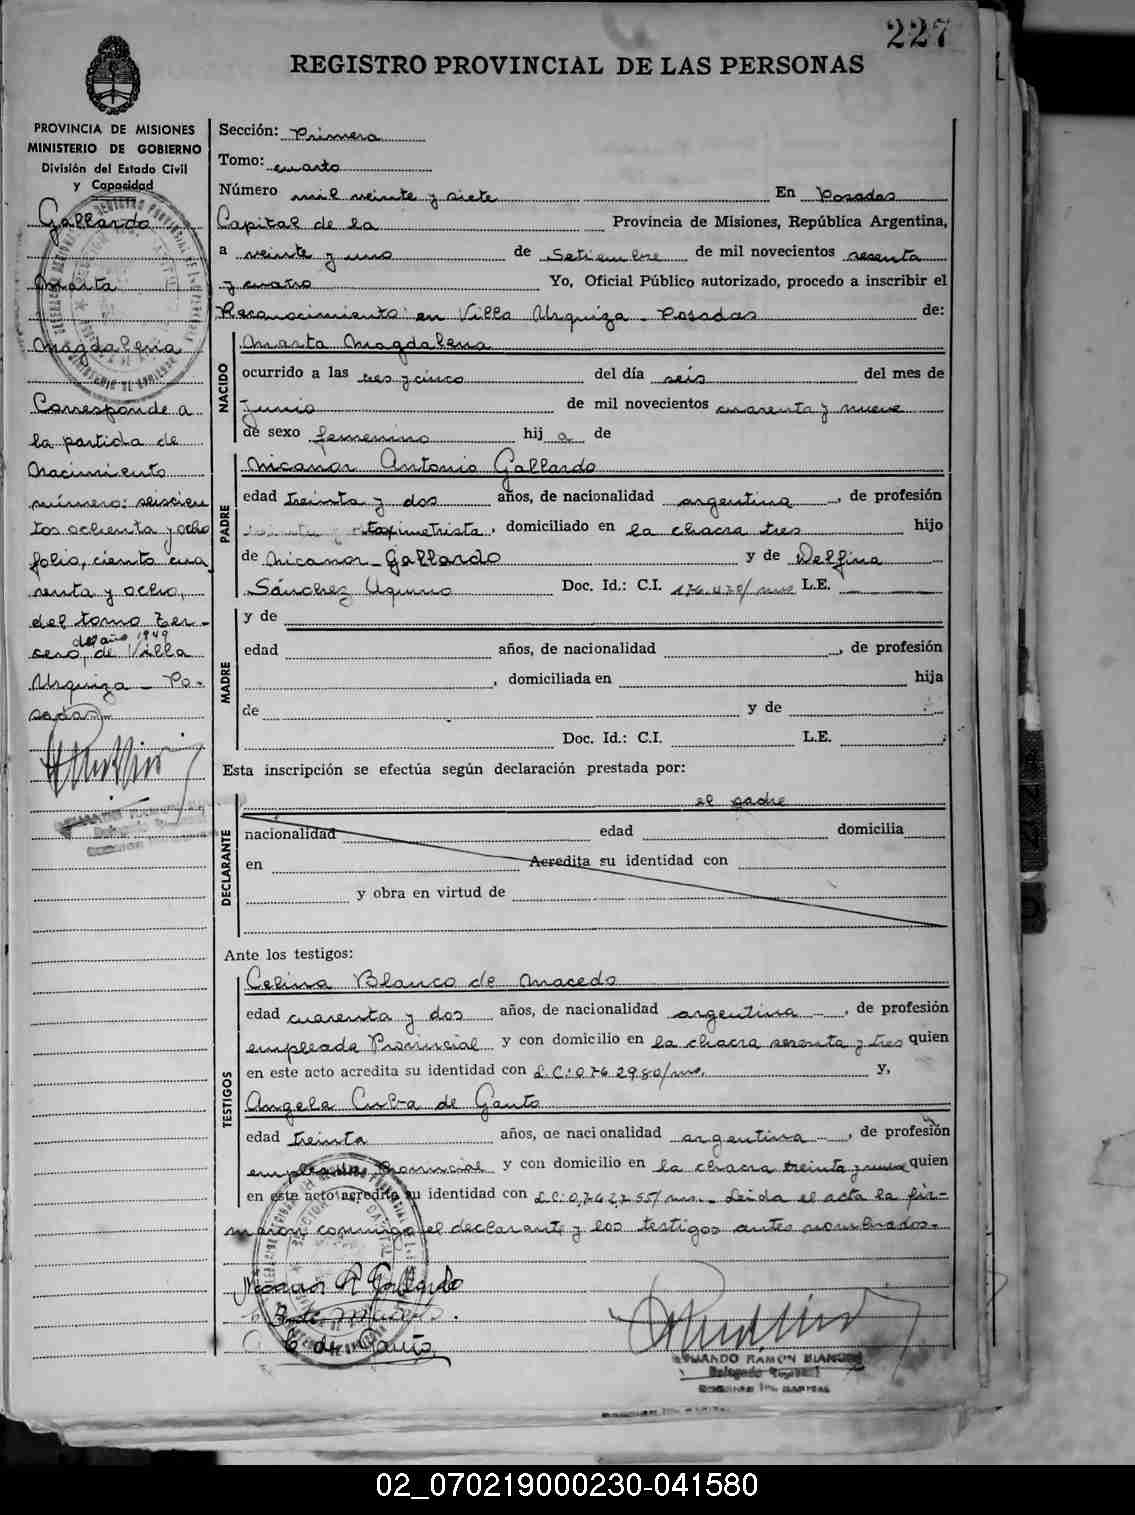 227
REGISTRO PROVINCIAL DE LAS PERSONAS
PROVINCIA DE MISIONES
MINISTERIO DE GOBIERNO
División del Estado Civil
y Capacidad
Gallardo
Marta
Magdalena
Corresponde a
la partida de
Nacimiento
número: seiscien
tos ochenta y ocho
folio, ciento cua
renta y ocho,
del tomo ter-
del año 1949
cero, de Villa
Urquiza - Po-
sadas
Sección: Primera
Tomo: cuarto
Número mil veinte y siete En Posadas
Capital de la Provincia de Misiones, República Argentina,
a veinte y uno de Setiembre de mil novecientos sesenta
y cuatro Yo, Oficial Público autorizado, procedo a inscribir el
Reconocimiento: en Villa Urquiza - Posadas de:
NACIDO
Marta Magdalena
ocurrido a las tres y cinco del día seis del mes de
Junio de mil novecientos cuarenta y nueve
de sexo femenino hij a de
PADRE
Nicanor Antonio Gallardo
edad treinta y dos años, de nacionalidad argentina, de profesión
taximetrista, domiciliado en la chacra tres hijo
de Nicanor Gallardo y de Delfina
Sánchez Aquino Doc. Id.: C.I. L.E.
MADRE
y de
edad años, de nacionalidad , de profesión
, domiciliada en hija
de y de
Doc. Id.: C.I. L.E.
Esta inscripción se efectúa según declaración prestada por:
DECLARANTE
el padre
nacionalidad edad domicilia
en Acredita su identidad con
y obra en virtud de
Ante los testigos:
TESTIGOS
Celina Blanco de Macedo
edad cuarenta y dos años, de nacionalidad argentina, de profesión
empleada Provincial y con domicilio en la chacra sesenta y tres quien
en este acto acredita su identidad con L.C: y,
Angela Cuba de Gauto
edad treinta años, de nacionalidad argentina, de profesión
empleada Provincial y con domicilio en la chacra treinta y nueve quien
en este acto acredita su identidad con L.C: Leida el acta la fir-
maron conmigo el declarante y los testigos antes nombrados.
Nicanor A Gallardo
de Gauto
ARMANDO RAMON
02_070219000230-041580